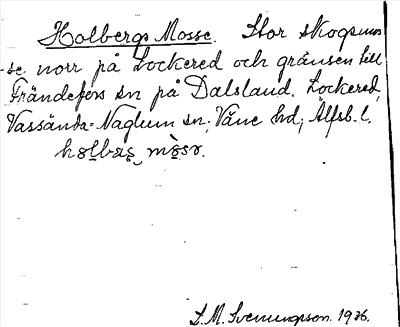 Holbergs Mosse. Stor skogsmos
-se norr på Lockered och gränsen till
Frändefors sn på Dalsland. Lockered,
Vassända-Naglum sn; Väne hd; Älfsb. l.
L. M. Svenungsson. 1936.